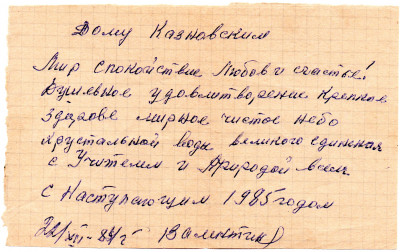 Дому Казновским
Мир спокойствие Любов и счастье!
Душевное удовлитворение Крепкое
здорове мирное чистое небо
хрустальной воды великого единения
с Учителем и Природой всем
с Наступающим 1985 годом
22/XII-84 г Валентин